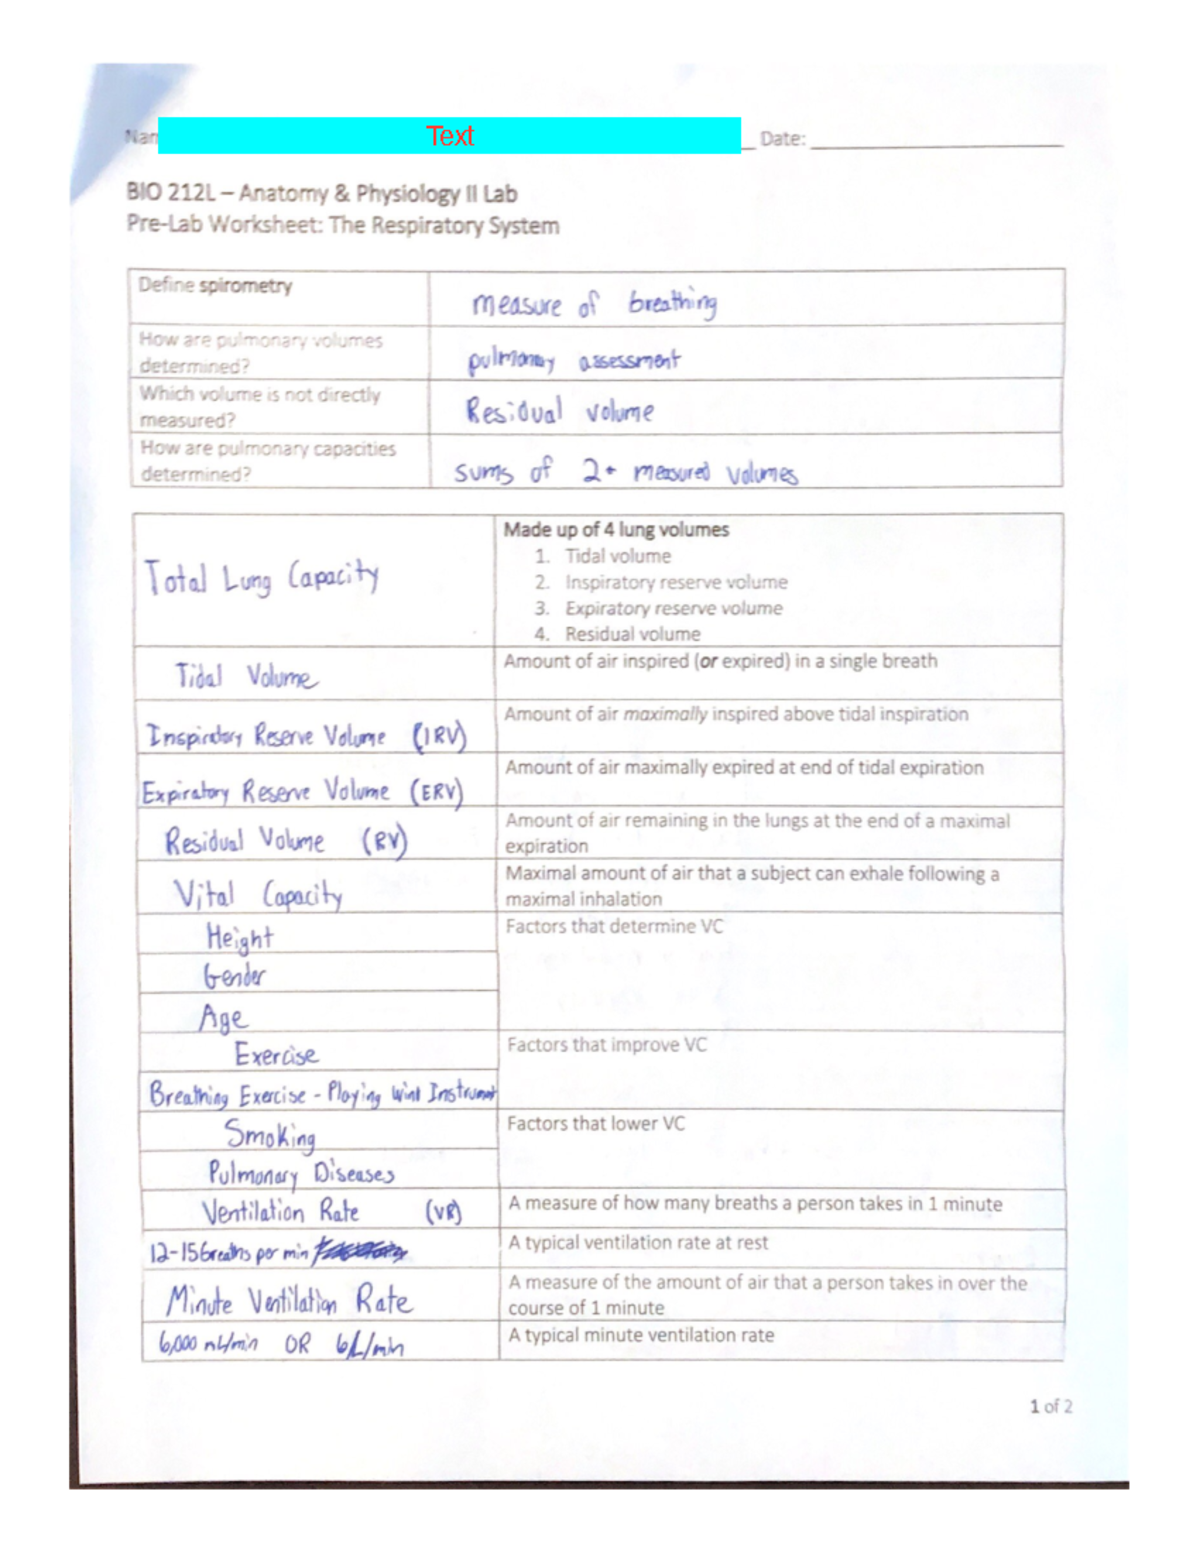 Text
Nam
Date:
BIO 212L – Anatomy & Physiology II Lab
Pre-Lab Worksheet: The Respiratory System
Define spirometry
measure of breathing
How are pulmonary volumes
determined?
pulmonary assessment
Which volume is not directly
measured?
Residual volume
How are pulmonary capacities
determined?
sums of 2+ measured volumes
Total Lung Capacity
Made up of 4 lung volumes
1. Tidal volume
2. Inspiratory reserve volume
3. Expiratory reserve volume
4. Residual volume
Tidal Volume
Amount of air inspired (or expired) in a single breath
Inspiratory Reserve Volume (IRV)
Amount of air maximally inspired above tidal inspiration
Expiratory Reserve Volume (ERV)
Amount of air maximally expired at end of tidal expiration
Residual Volume (RV)
Amount of air remaining in the lungs at the end of a maximal
expiration
Vital Capacity
Maximal amount of air that a subject can exhale following a
maximal inhalation
Height
Gender
Age
Factors that determine VC
Exercise
Breathing Exercise - Playing Wind Instrument
Factors that improve VC
Smoking
Pulmonary Diseases
Factors that lower VC
Ventilation Rate (VR)
A measure of how many breaths a person takes in 1 minute
12-15 breaths per min
A typical ventilation rate at rest
Minute Ventilation Rate
A measure of the amount of air that a person takes in over the
course of 1 minute
6,000 mL/min OR 6L/min
A typical minute ventilation rate
1 of 2